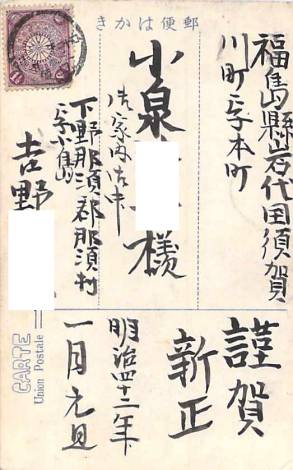 郵便はかき
福島縣岩代国須賀
川町字本町
小泉 様
御家内御中
下野那須郡那須村
字小島
吉野
CARTE
Union Postale
謹賀
新正
明治四十二年
一月元旦